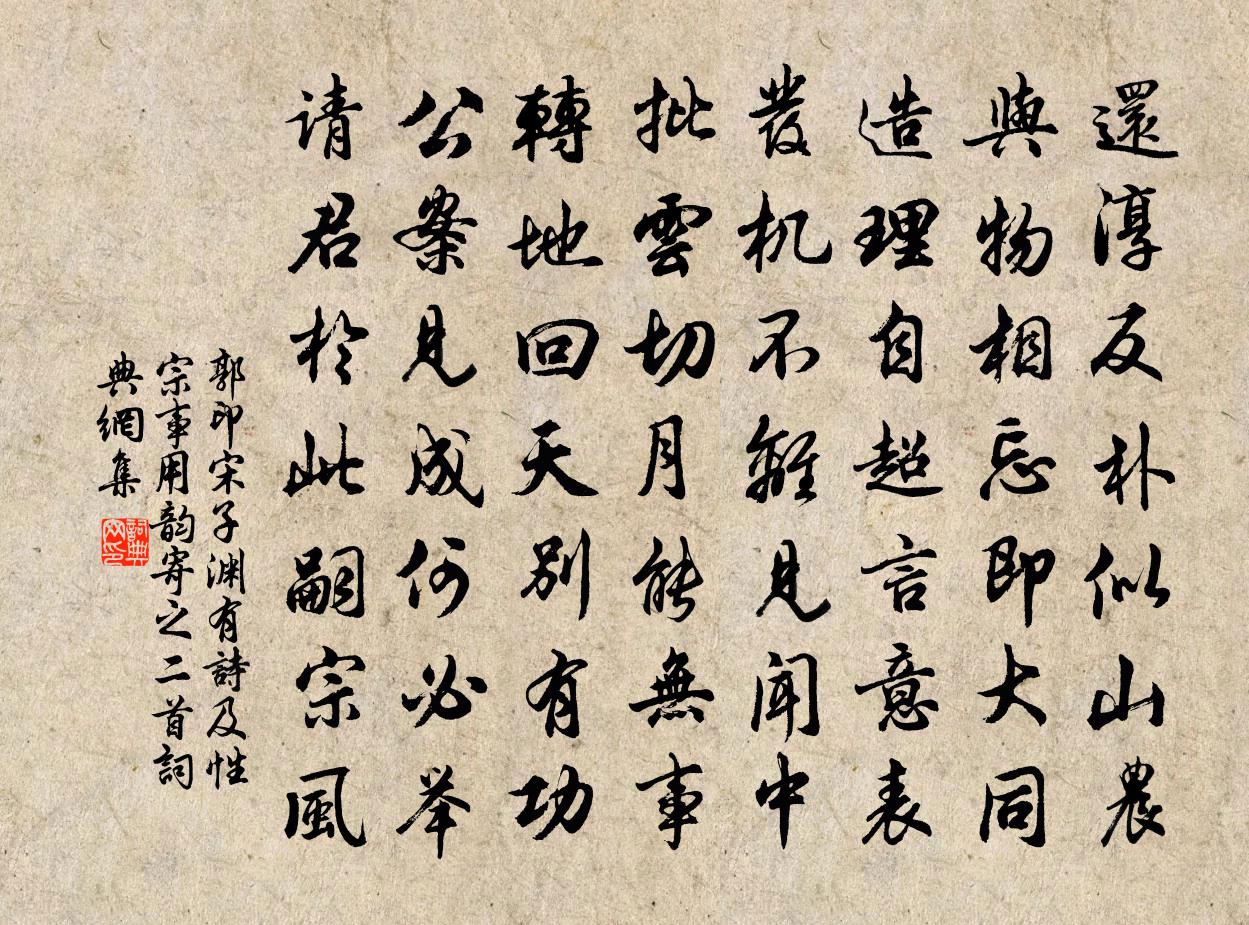 還淳反朴似山農
與物相忘即大同
造理自超言意表
發机不離見聞中
批雲切月能無事
轉地回天別有功
公案見成何必举
请君於此嗣宗風
郭印宋子渊有詩及性
宗事用韵寄之二首詞
典網集
詞典
网印